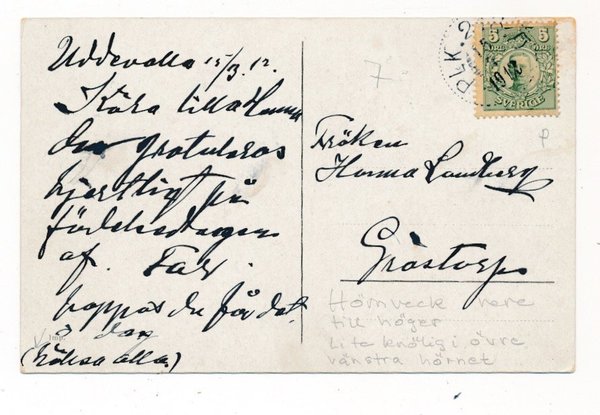 Uddevalla 15/3.12.
Kära lilla Hanna
den gratuleras
hjertligt på
födelsedagen
af. Far.
hoppas du får det
(hälsa alla)
Imp.
7
PLK. 2
1912
5 5
ÖRE
SVERIGE
P
Fröken
Hanna Landberg
Grästorp
Hörnveck nere
till höger
Lite knölig i övre
vänstra hörnet